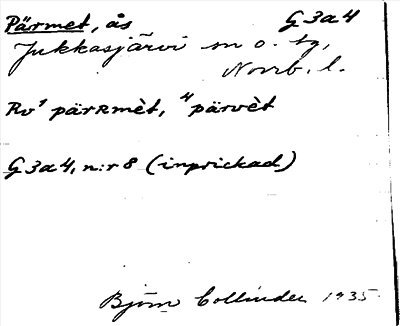 Pärmet, ås G3a4
Jukkasjärvi sn o. tg,
Norrb. l.
Rv¹ pärʀmèt, ⁴pärvèt
G3a4, n:r 8 (inprickad)
Björn Collinder 1935